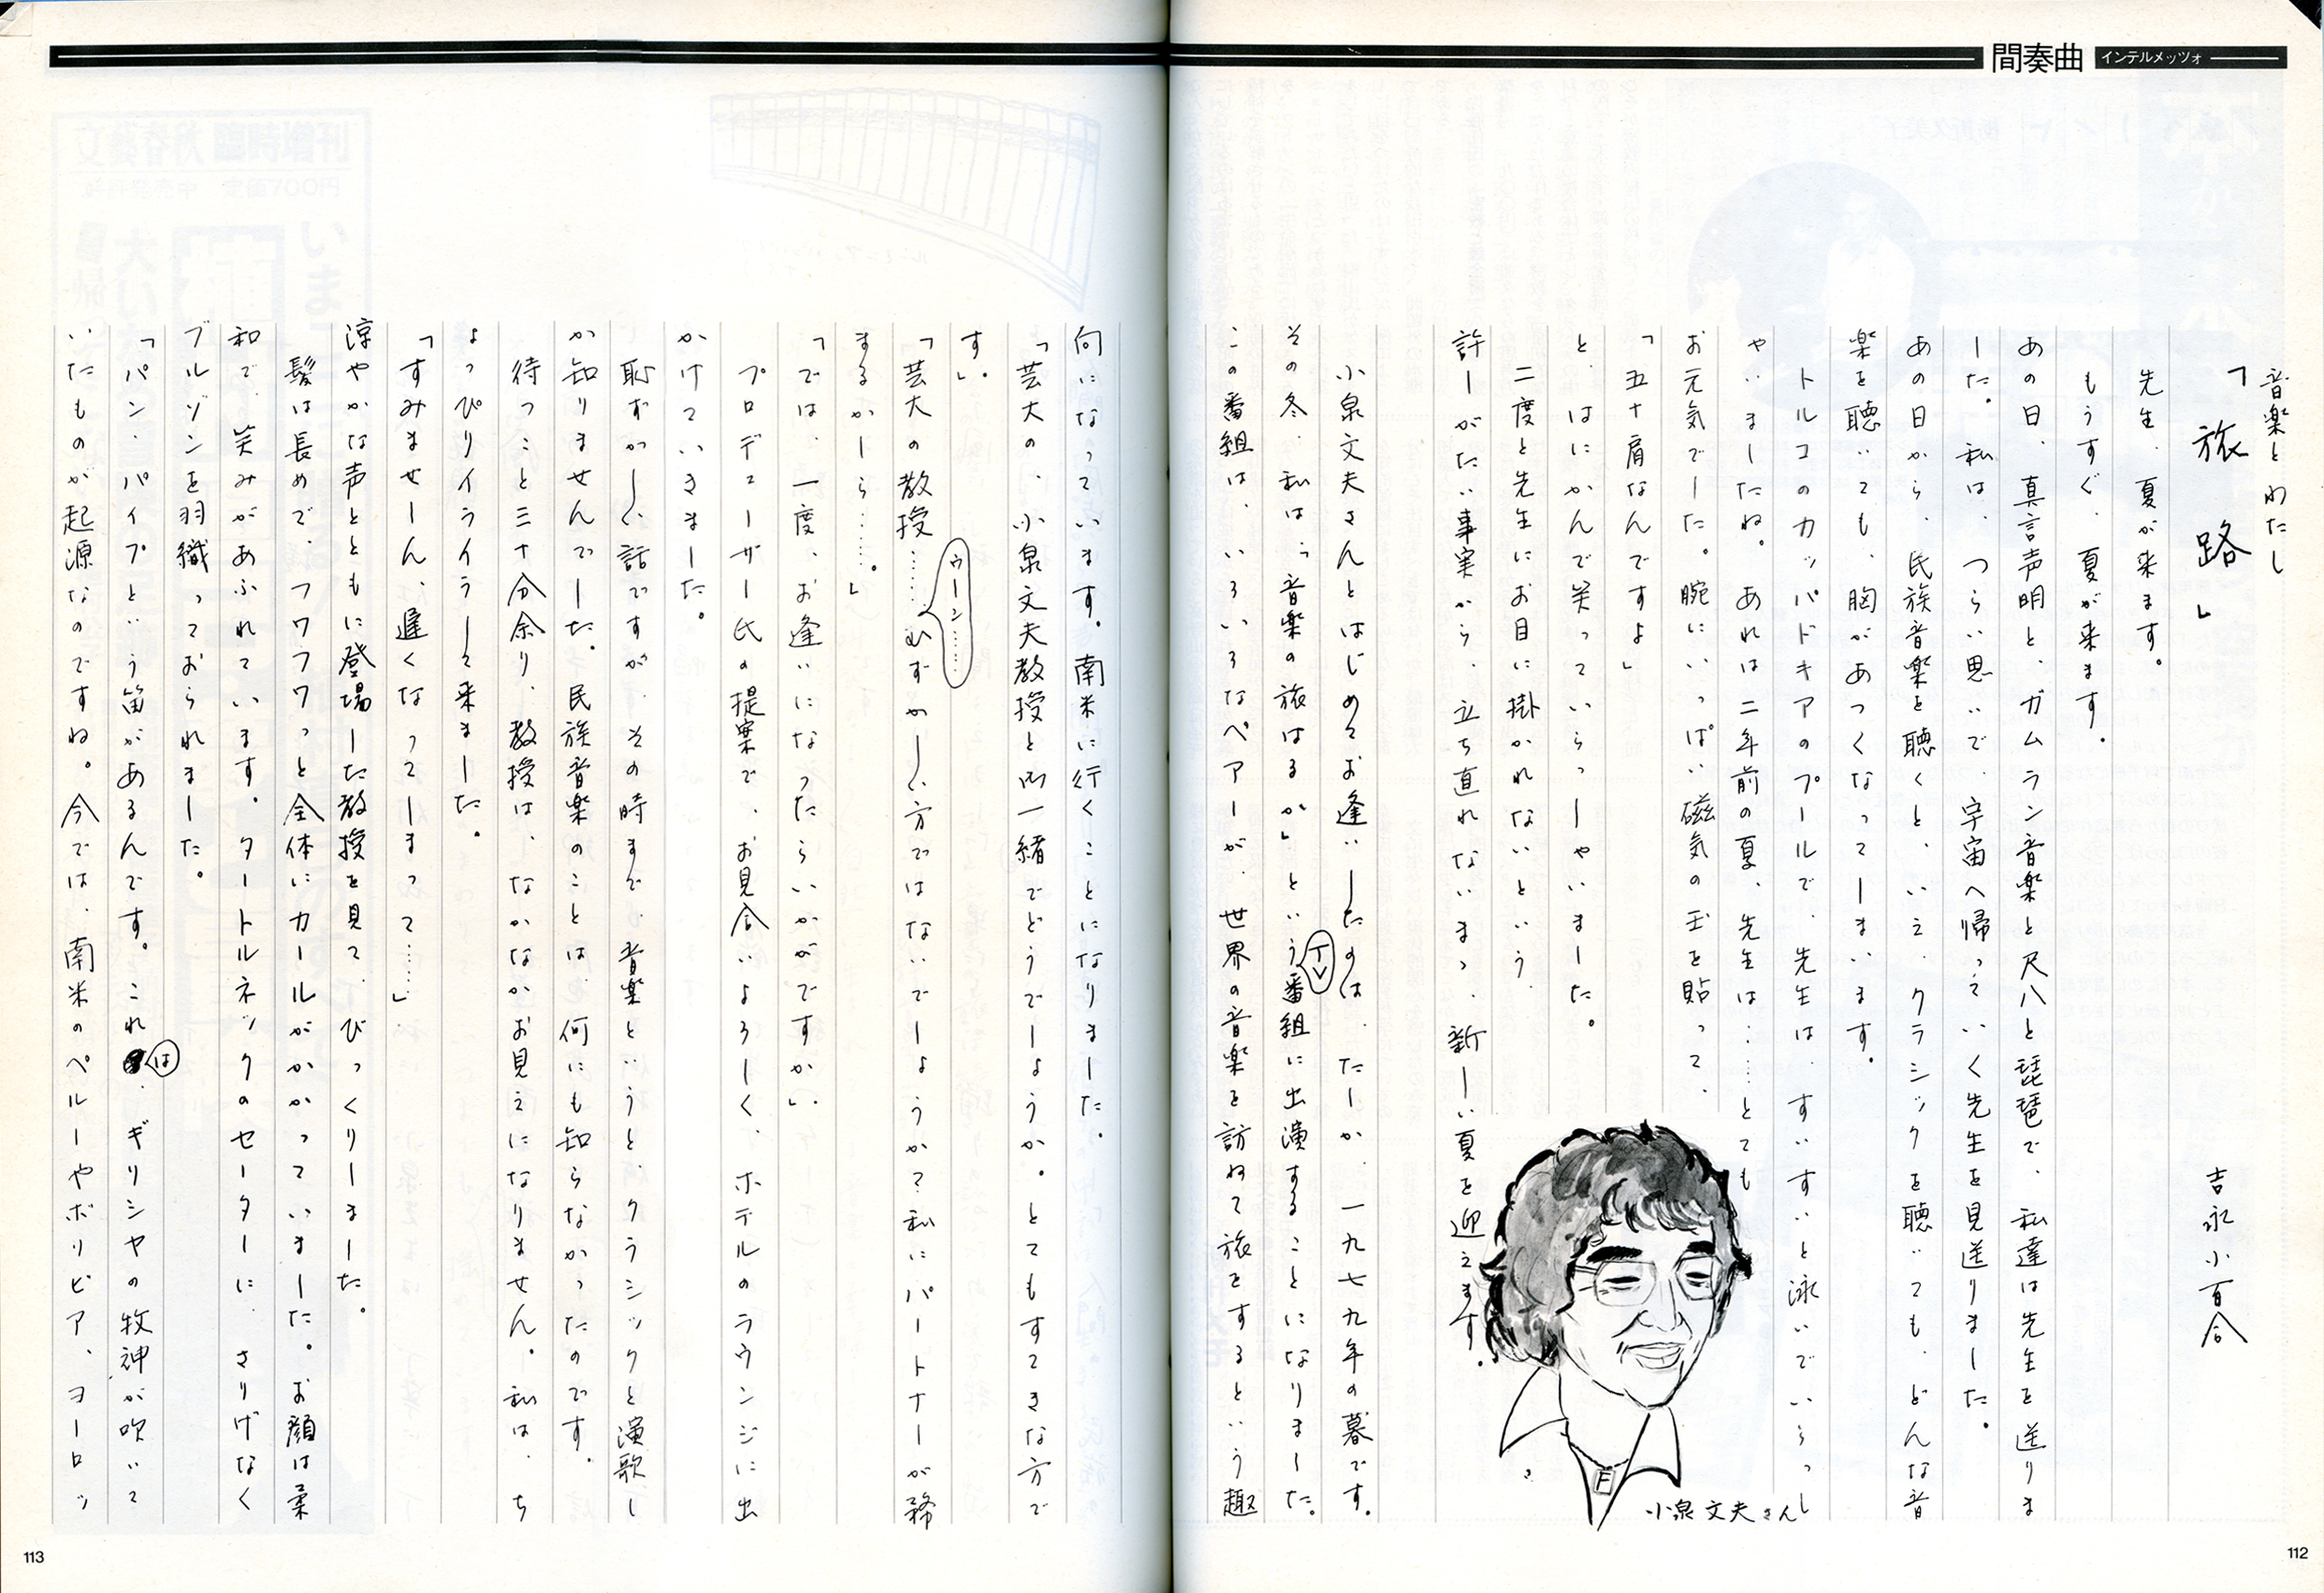 間奏曲 インテルメッツォ
音楽とわたし
「旅路」
吉永小百合
先生、夏が来ます。
もうすぐ、夏が来ます。
あの日、真言声明と、ガムラン音楽と尺八と琵琶で、私達は先生を送りま
した。私は、つらい思いで、宇宙へ帰っていく先生を見送りました。
あの日から、民族音楽を聴くと、いえ、クラシックを聴いても、どんな音
楽を聴いても、胸があつくなってしまいます。
トルコのカッパドキアのプールで、先生は、すいすいと泳いでいらっし
ゃいましたね。あれは二年前の夏、先生は……とても
お元気でした。腕にいっぱい磁気の玉を貼って、
「五十肩なんですよ」
と、はにかんで笑っていらっしゃいました。
二度と先生にお目に掛かれないという、
許しがたい事実から、立ち直れないまゝ、新しい夏を迎えます。
小泉文夫さん
小泉文夫さんとはじめてお逢いしたのは、たしか、一九七九年の暮です。
その冬、私は「音楽の旅はるか」というTV番組に出演することになりました。
この番組は、いろいろなペアーが、世界の音楽を訪ねて旅をするという趣
向になっています。南米に行くことになりました。
「芸大の、小泉文夫教授と御一緒でどうでしょうか。とてもすてきな方で
す」。
「芸大の教授……ウーン……むずかしい方ではないでしょうか？私にパートナーが務
まるかしら……。」
「では、一度、お逢いになったらいかがですか」。
プロデューサー氏の提案で、お見合いよろしく、ホテルのラウンジに出
かけていきました。
恥ずかしい話ですが、その時まで、音楽というと、クラシックと演歌し
か知りませんでした。民族音楽のことは、何にも知らなかったのです。
待つこと三十分余り、教授は、なかなかお見えになりません。私は、ち
ょっぴりイライラして来ました。
「すみませーん、遅くなってしまって……」。
涼やかな声とともに登場した教授を見て、びっくりしました。
髪は長めで、フワフワっと全体にカールがかかっていました。お顔は柔
和で、笑みがあふれています。タートルネックのセーターに、さりげなく
ブルゾンを羽織っておられました。
「パン・パイプという笛があるんです。これは、ギリシャの牧神が吹いて
いたものが起源なのですね。今では、南米のペルーやボリビア、ヨーロッ
112
113